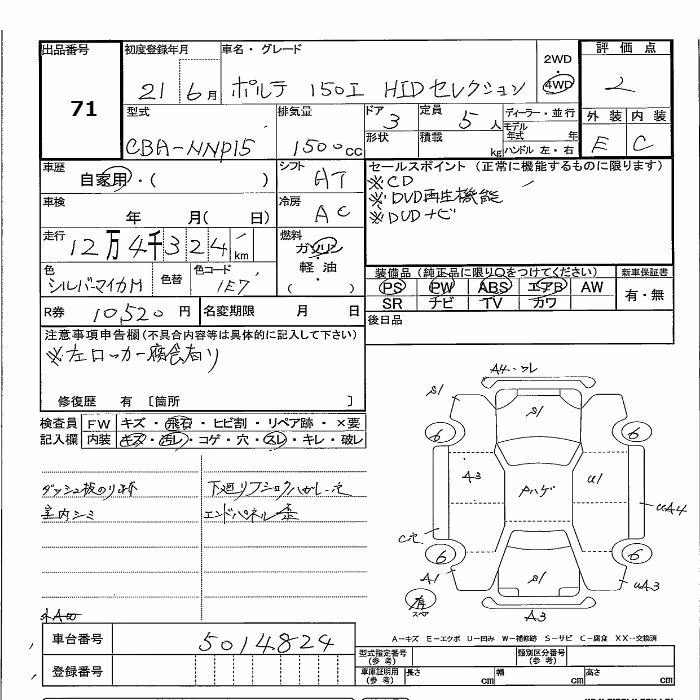 出品番号 71
初度登録年月 21 6月
車名・グレード ポルテ 150I HIDセレクション
2WD
4WD
評価点
2
型式 CBA-NNP15
排気量 1500cc
ドア 3
形状
定員 5人
積載 kg
ディーラー・並行
モデル年式 年
ハンドル 左・右
外装 内装
E C
車歴 自家用・( )
シフト AT
車検 年 月( 日)
冷房 AC
走行 12万4千324km
燃料 ガソリン
軽・油
( )
セールスポイント(正常に機能するものに限ります)
※CD
※DVD再生機能
※DVDナビ
色 シルバーマイカM
色替
色コード 1E7
装備品(純正品に限り○をつけてください)
PS PW ABS エアB AW
SR ナビ TV カワ
新車保証書
有・無
R券 10520円
名変期限 月 日
後日品
注意事項申告欄(不具合内容等は具体的に記入して下さい)
※左ロッカー腐食有り
修復歴 有 〔箇所 〕
検査員記入欄
FW キズ・飛石・ヒビ割・リペア跡・×要
内装 キズ・汚レ・コゲ・穴・スレ・キレ・破レ
室内シミ
A4・ワレ
S1 S1
6 6
A3 Pハゲ U1
UA4
6 6
A1 S1 UA3
A3
A−キズ E−エクボ U−凹み W−補修跡 S−サビ C−腐食 XX−交換済
車台番号 5014824
登録番号
型式指定番号(参考)
類別区分番号(参考)
車庫証明用(参考) 長さ cm 幅 cm 高さ cm